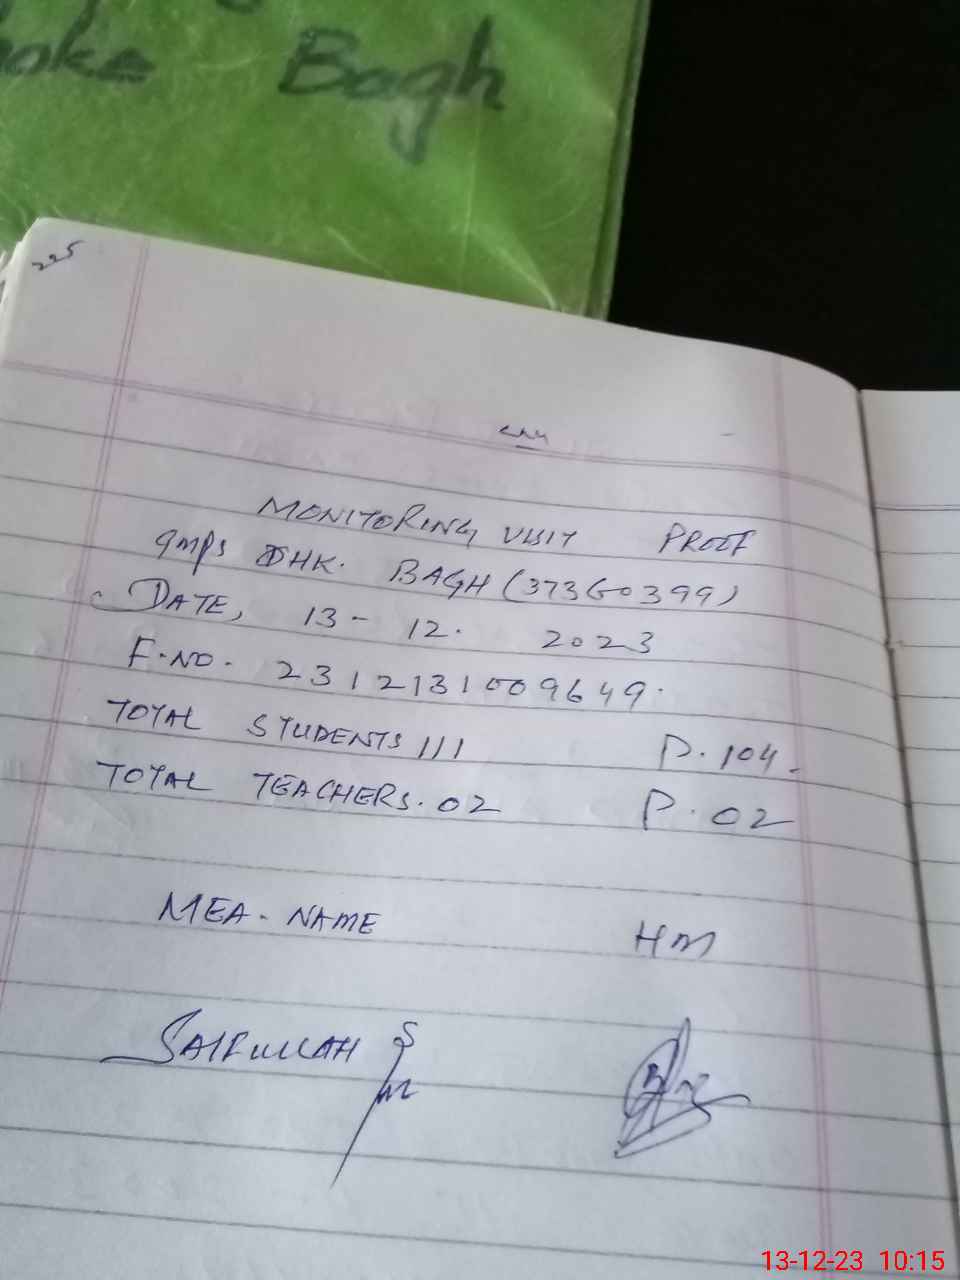 Bagh
225
MONITORING VISIT PROOF
GMPS DHK. BAGH (37360399)
DATE, 13-12. 2023
F.NO. 2312131009649.
TOTAL STUDENTS 111 P. 104.
TOTAL TEACHERS. 02 P. 02
MEA. NAME HM
SAIFULLAH
13-12-23 10:15